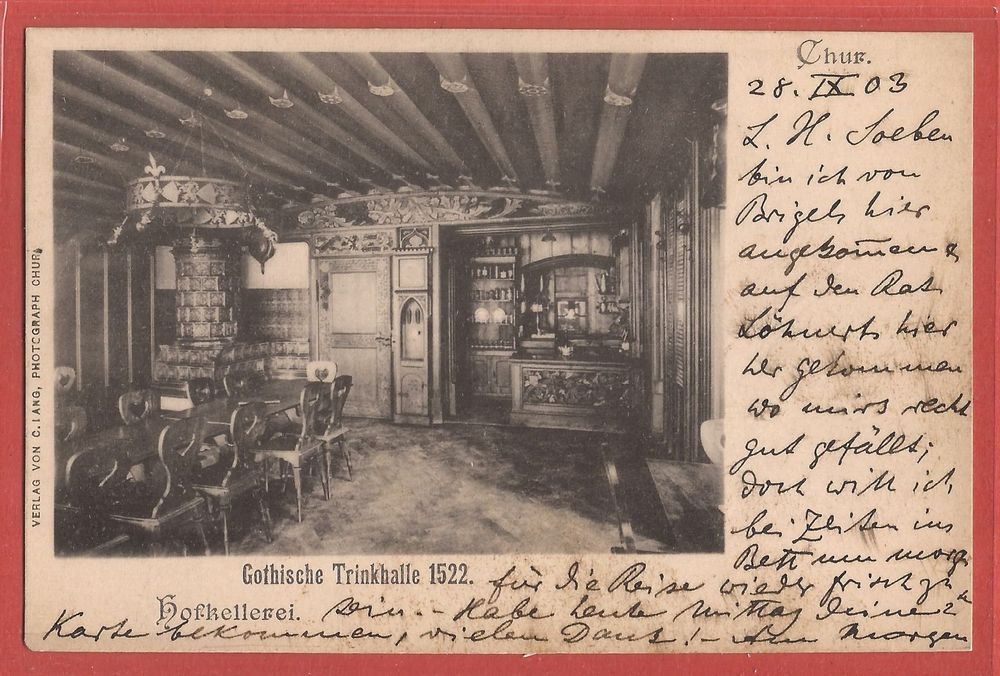 Chur.
28. IX 03
L. H. Soeben
bin ich von
Brigels hier
angekom̅en &
auf den Rat
Löhnerts hier
her gekommen
wo mirs recht
gut gefällt;
doch will ich
bei Zeiten ins
Bett um morg
für die Reise wieder frisch zu
sein. – Habe heute Mittag Deine 2
Karte bekommen, vielen Dank! – Am Morgen
Gothische Trinkhalle 1522.
Hofkellerei.
VERLAG VON C. LANG, PHOTOGRAPH CHUR.